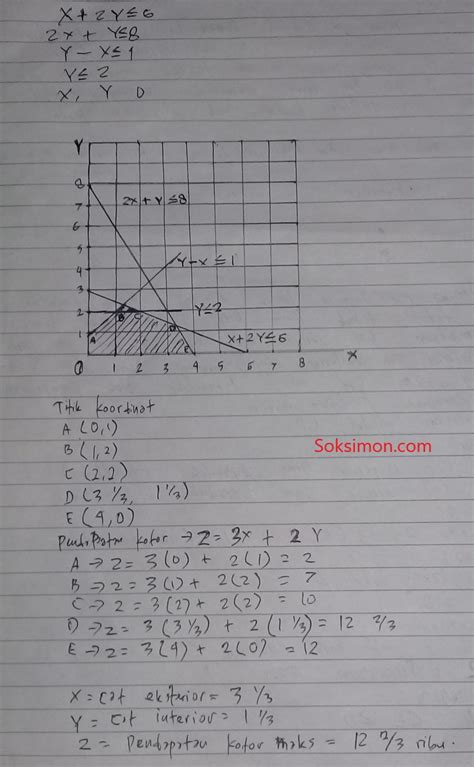 X + 2Y ≤ 6
2x + Y ≤ 8
Y - X ≤ 1
Y ≤ 2
X, Y 0
Y
8
7
6
5
4
3
2
1
0
2x + Y ≤ 8
Y - x ≤ 1
Y ≤ 2
x + 2Y ≤ 6
A
B
C
D
E
1 2 3 4 5 6 7 8
X
Titik koordinat
A (0,1)
B (1,2)
C (2,2)
D (3 1/3, 1 1/3)
E (4,0)
Soksimon.com
Pendapatan kotor → Z = 3x + 2 Y
A → Z = 3 (0) + 2 (1) = 2
B → Z = 3 (1) + 2 (2) = 7
C → Z = 3 (2) + 2 (2) = 10
D → Z = 3 (3 1/3) + 2 (1 1/3) = 12 2/3
E → Z = 3 (4) + 2 (0) = 12
X = cat eksterior = 3 1/3
Y = cat interior = 1 1/3
Z = Pendapatan kotor maks = 12 2/3 ribu.